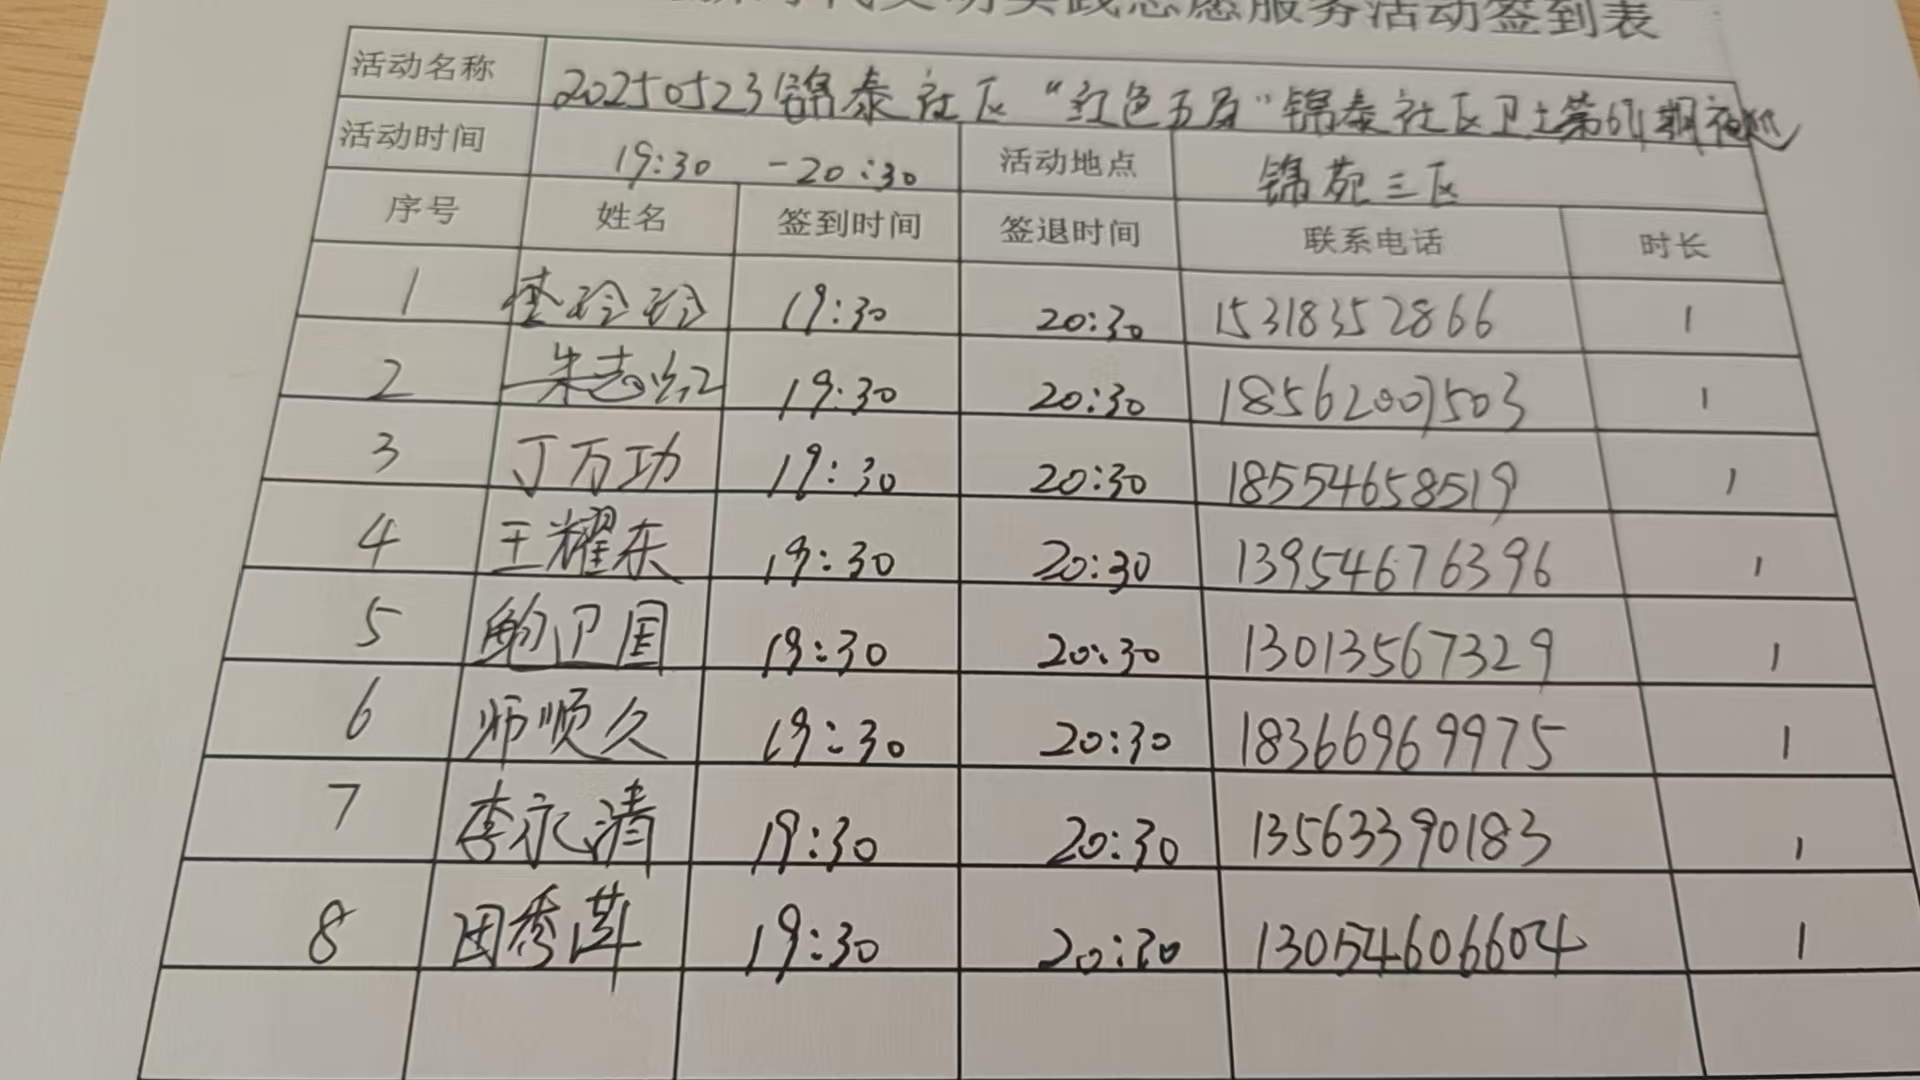 时代文明实践志愿服务活动签到表
活动名称 20250523锦泰社区“红色五星”锦泰社区卫士第61期夜巡
活动时间 19:30 -20:30 活动地点 锦苑三区
序号 姓名 签到时间 签退时间 联系电话 时长
1 李玲玲 19:30 20:30 15318352866 1
2 朱志红 19:30 20:30 18562007503 1
3 丁万功 19:30 20:30 18554658519 1
4 王耀东 19:30 20:30 13954676396 1
5 鲍卫国 19:30 20:30 13013567329 1
6 师顺久 19:30 20:30 18366969975 1
7 李永清 19:30 20:30 13563390183 1
8 田秀萍 19:30 20:30 13054606604 1